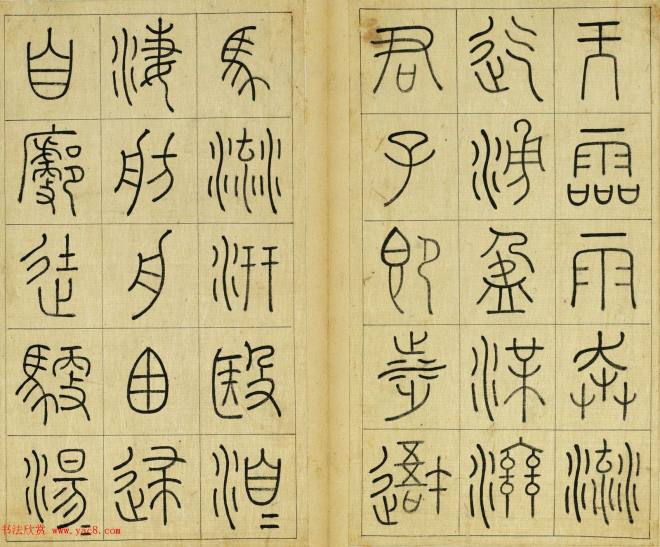 天霝雨奔流
迄湧盈渫
君子即涉
馬流汧殹洎=
淒舫舟囪逮
自廓徒馭湯=
书法欣赏 www.yac8.com